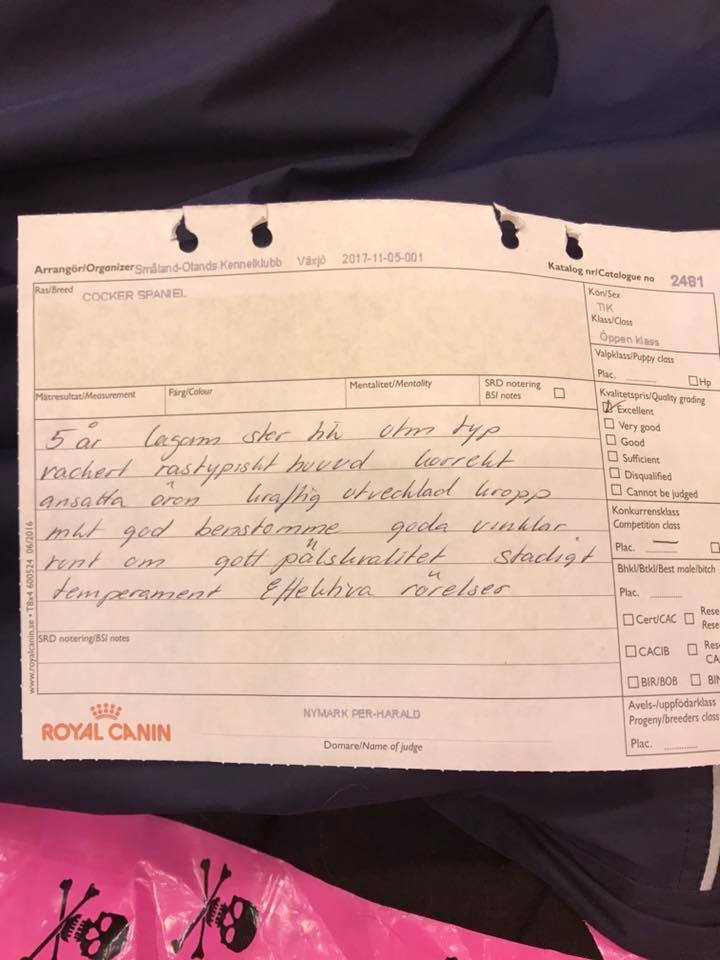 Arrangör/Organizer Småland-Ölands Kennelklubb Växjö 2017-11-05-001
Katalog nr/Catalogue no 2481
Ras/Breed COCKER SPANIEL
Kön/Sex
TIK
Klass/Class
Öppen klass
Valpklass/Puppy class
Plac. Hp
Mätresultat/Measurement Färg/Colour Mentalitet/Mentality SRD notering
BSI notes
Kvalitetspris/Quality grading
Excellent
Very good
Good
Sufficient
Disqualified
Cannot be judged
5 år lagom stor tik utm typ
vackert rastypiskt huvud korrekt
ansatta öron kraftig utvecklad kropp
mkt god benstomme goda vinklar
runt om gott pälskvalitet stadigt
temperament Effektiva rörelser
Konkurrensklass
Competition class
Plac.
Bhkl/Btkl/Best male/bitch
Plac.
Cert/CAC Rese
Rese
CACIB Res
CA
BIR/BOB BIN
SRD notering/BSI notes
Avels-/uppfödarklass
Progeny/breeders class
Plac.
www.royalcanin.se • TBx4 600524 06/2016
ROYAL CANIN
NYMARK PER-HARALD
Domare/Name of judge